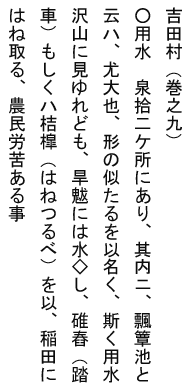 吉田村（巻之九）
〇用水　泉拾二ケ所にあり、其内ニ、瓢簞池と
云ハ、尤大也、形の似たるを以名く、斯く用水
沢山に見ゆれども、旱魃には水◇し、碓舂（踏
車）もしくハ桔槹（はねつるべ）を以、稲田に
はね取る、農民労苦ある事